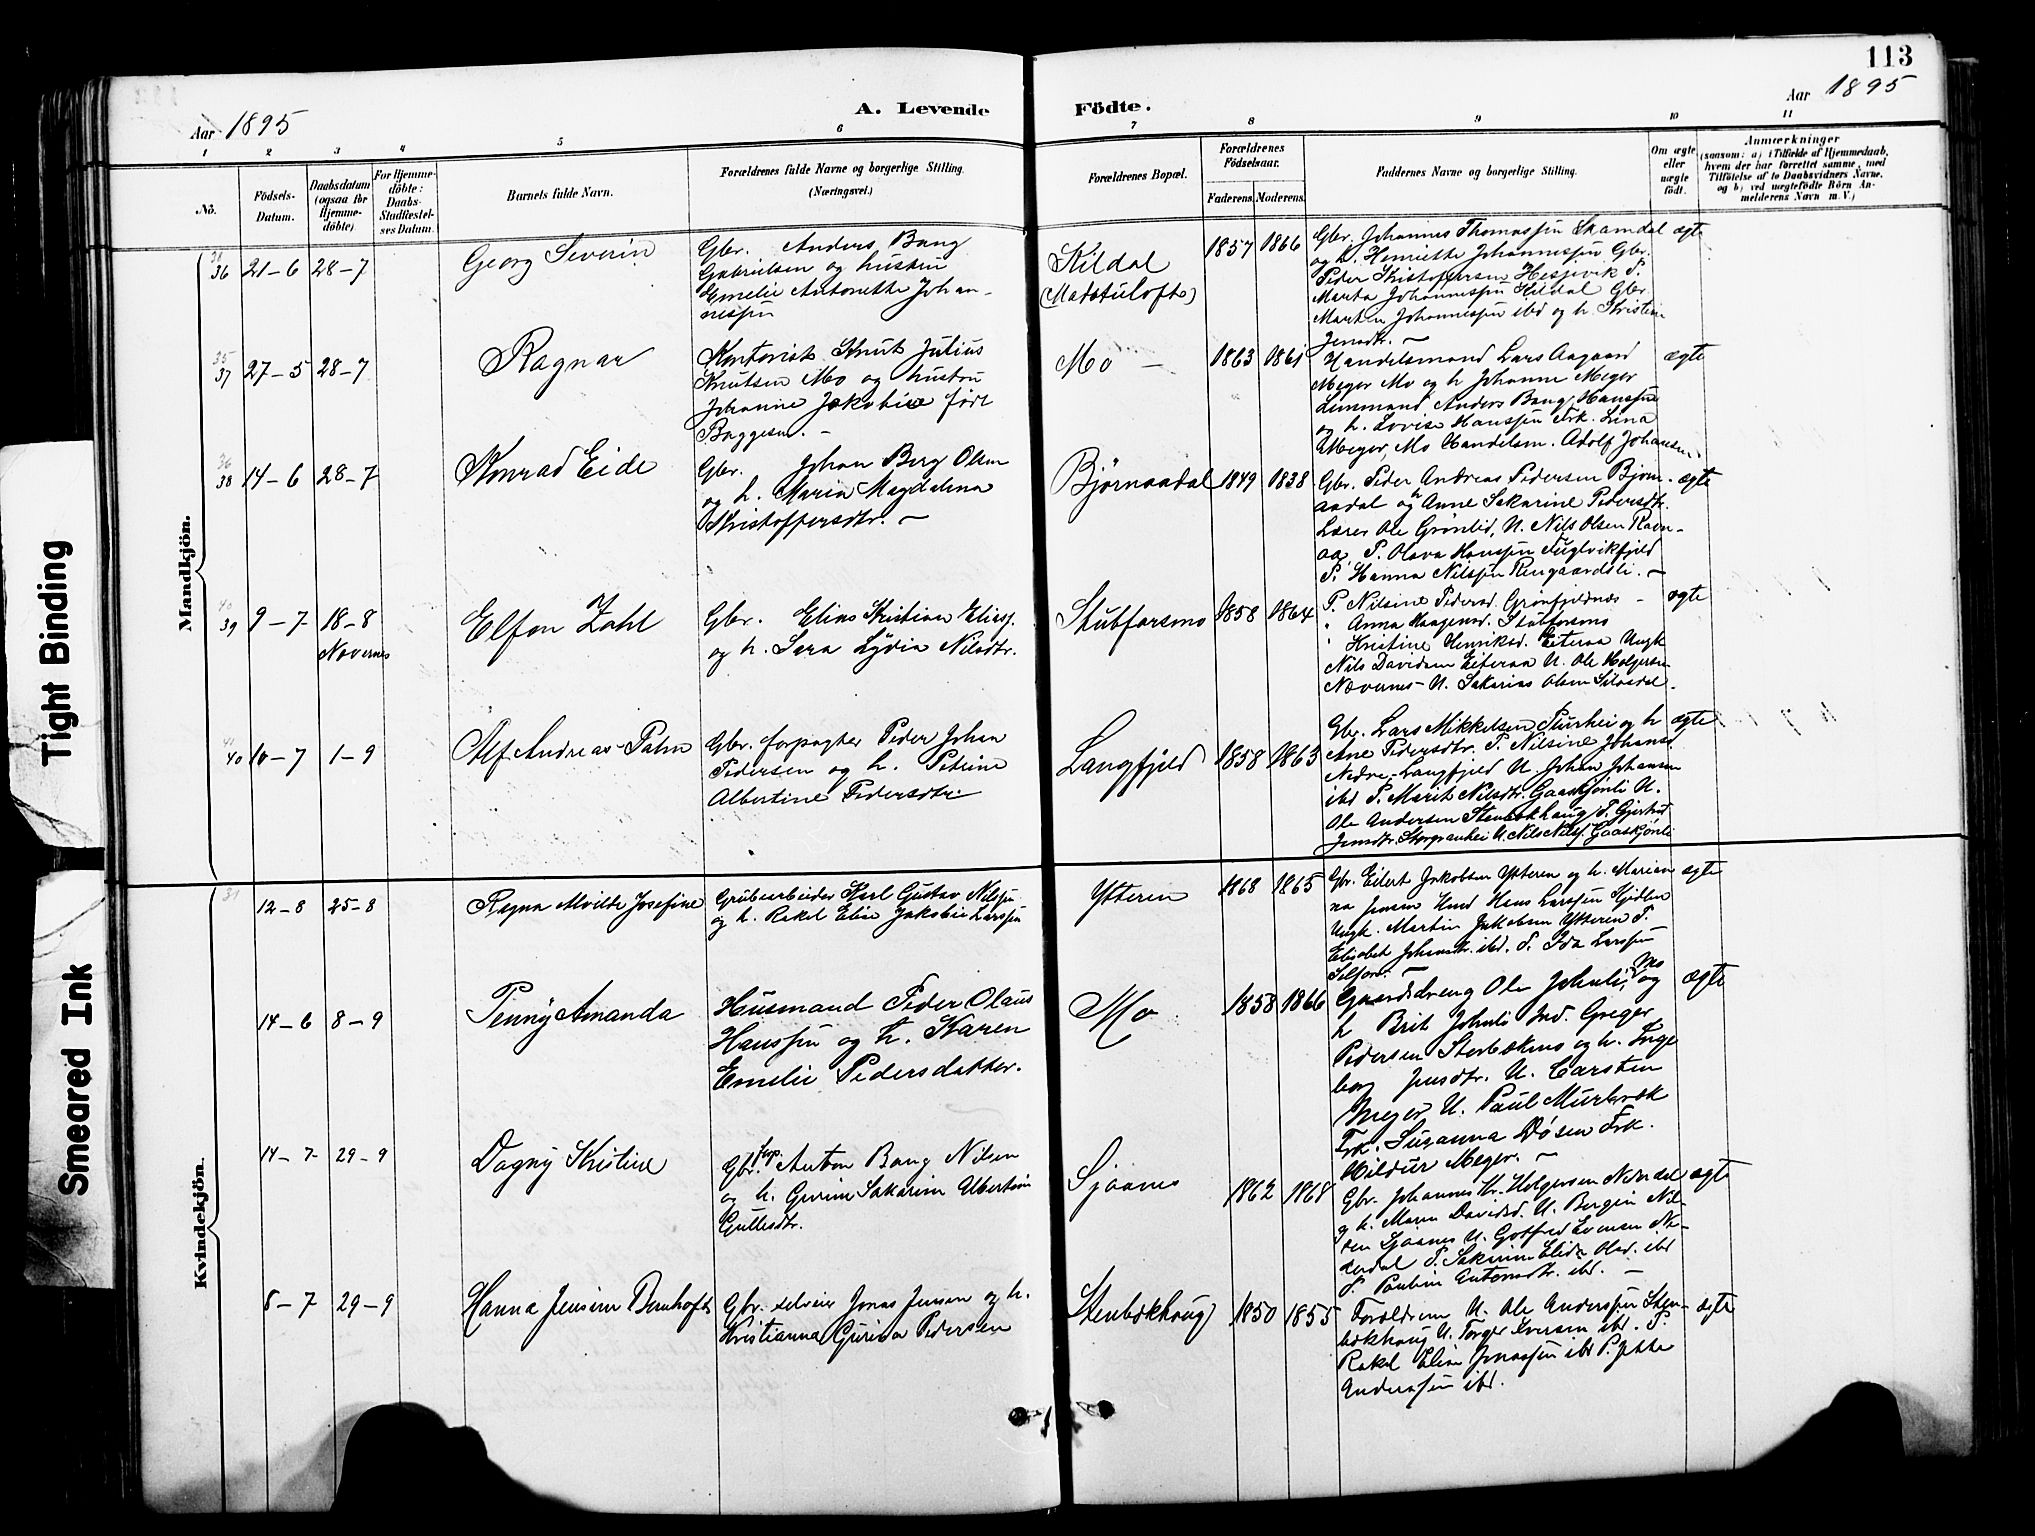 113
Aar 1895
A. Levende Födte.
Aar 1895
1 2 3 4 5 6 7 8 9 10 11
No.
Födsels-
Datum.
Daabsdatum
(ogsaa for
Hjemme-
döbte)
For Hjemme-
döbte:
Daabs-
Stadfæstel-
ses Datum.
Barnets fulde Navn.
Forældrenes fulde Navne og borgerlige Stilling.
(Næringsvei.)
Forældrenes Bopæl.
Forældrenes
Födselsaar.
Faderens Moderens
Faddernes Navne og borgerlige Stilling.
Om ægte
eller
uægte
födt.
Anmærkninger
(saasom: a) i Tilfælde af Hjemmedaab,
hvem der har forrettet samme, med
Tilföielse af to Daabsvidners Navne,
og b) ved uægtefödte Börn An-
melderens Navn m. V.)
Mandkjön.
38
36 21-6 28-7
Georg Severin
Gbr. Anders Bang
Gabrielsen og hustru
Emelie Antonette Johan-
nespn
Kildal
(Madstuloft)
1857 1866
Gbr. Johannes Thomaspn Skamdal
og h. Henriette Johannespn Gbr.
Peder Kristoffersen Hesjevik P.
Marta Johannespn Kildal Gbr.
Marten Johannespn ibd og h. Kristin
Jensdtr. -
ægte
35
37 27-5 28-7
Ragnar
Kontorist Knut Julius
Knutsen Mo og hustru
Johanne Jakobine født
Baggesen. -
Mo -
1863 1861
Handelsmand Lars Aagaard
Meyer Mo og h Johanne Meyer
Lensmand Anders Bang Hanspn
og h. Lovise Hanspn Frk. Lina
Meyer, Mo Handelsm. Adolf Johansen
ægte
36
38 14-6 28-7
Konrad Eide
Gbr. Johan Berg Olsen
og h. Maria Magdalena
Kristoffersdtr. -
Bjørnaadal
1849 1838
Gbr. Peder Andreas Pedersen Bjørn-
aadal og h Anne Sakarine Pedersdtr.
Lærer Ole Grønlid, U. Nils Olsen Ravn-
aa, P. Olava Hanspn Fuglvikfjeld
P. Hanna Nilspn Rengaardsli. -
ægte
40
39 9-7 18-8
Nævernes
Elfon Zahl
Gbr. Elias Kristian Eliasp.
og h. Sara Lydia Nilsdtr.
Stubforsmo
1858 1864
P. Nilsine Pedersd. Grønfjeldnæs -
" Anna Haagensd. Stubforsmo
" Kristine Henriksd. Eiteraa Ungk
Nils Davidsen Eiteraa U. Ole Holgersen
Nævernes - U. Sakarias Olsen
ægte
41
40 10-7 1-9
Alf Andreas Palm
Gbr. forpagter Peder Johan
Pedersen og h. Petrine
Albertine Pedersdtr.
Langfjeld
1858 1863
Gbr. Lars Mikkelsen Purrhei og h
Ane Pedersdtr. P. Nilsine Johansd
Nedre-Langfjeld U. Johan Johansen
ibd P. Marit Nilsdtr. Gaaskjønli U.
Ole Andersen Stenbækhaug P. Gjertrud
Jensdtr. U. Nils Nilsp. Gaaskjønli
ægte
Kvindekjön.
31
12-8 25-8
Ragna Alvilde Josefine
Grubearbeider Karl Gustav Nilspn
og h. Rakel Elise Jakobie Larspn
Ytteren
1868 1865
Gbr. Eilert Jakobsen Ytteren og h. Marian
na Jensen Hmd Hans Larspn
Ungk. Martin Jakobsen Ytteren P.
Elisabet Johansdtr. ibd. P. Ida Larspn
Selfors. -
ægte
14-6 8-9
Penny Amanda
Husmand Peder Olaus
Hanspn og h. Karen
Emelie Pedersdatter.
Mo
1858 1866
Gaardsdreng Ole Johnli, Mo og
h Brit Johnli Ind. Greger
Pedersen Storbækmo og h. Inge
borg Jensdtr. U. Carsten
Meyer U. Paul Murbræk
Frk. Susanna Døsen Frk.
Hildur Meyer. -
ægte
14-7 29-9
Dagny Kristine
Gbr. Anton Bang Nilsen
og h. Gurine Sakarine Albertine
Gullesdtr.
Sjaanes
1862 1868
Gbr. Johannes Holgersen
og h. Maren Davidsd. U. Bergin Nil-
sen Sjaanes U. Gotfred Evensen Ne-
derdal P. Sakarine Elida Olsd. ibd
P. Pauline Antonsdtr. ibd. -
ægte
8-7 29-9
Hanna Jensine Bernhofts
Gbr. selveier Jonas Jensen og h.
Kristianna Gurina Pedersen
Stenbækhaug
1850 1855
Forældrene U. Ole Anderspn Sten-
bækhaug U. Torger Iversen ibd. P.
Rakel Elise Jonaspn ibd P. Jette
Anderspn ibd.
ægte
Tight Binding
Smeared Ink